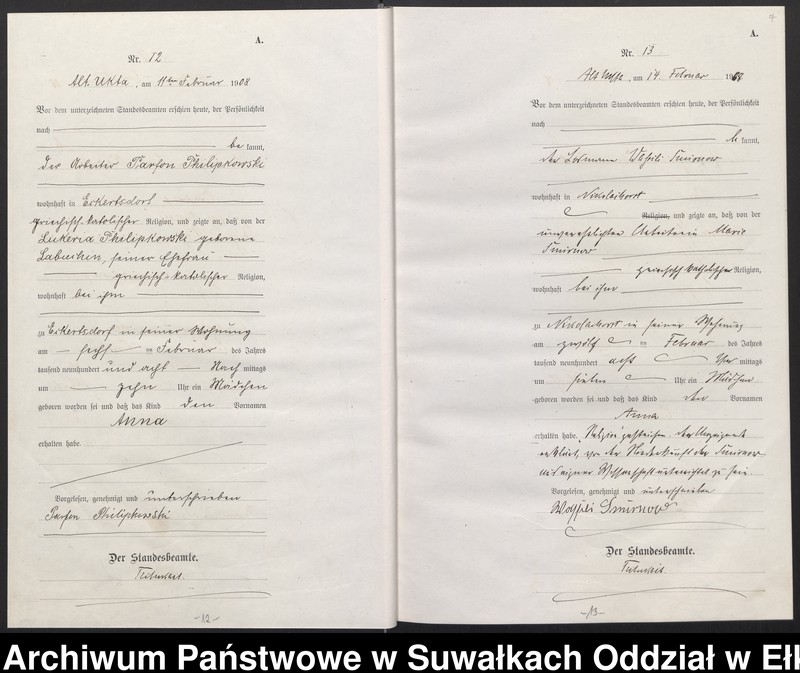 A.
Nr. 12
Alt Ukta, am 11ten Februar 1908
Vor dem unterzeichneten Standesbeamten erschien heute, der Persönlichkeit
nach
bekannt,
der Arbeiter Parfon Philipkowski
wohnhaft in Eckertsdorf
griechisch-katolischer Religion, und zeigte an, daß von der
Lukeria Philipkowski geborene
seiner Ehefrau
griechisch-katolischer Religion,
wohnhaft bei ihm
zu Eckertsdorf in seiner Wohnung
am sechs ten Februar des Jahres
tausend neunhundert und acht Nach mittags
um zehn Uhr ein Mädchen
geboren worden sei und daß das Kind den Vornamen
Anna
erhalten habe.
Vorgelesen, genehmigt und unterschrieben
Parfon Philipkowski
Der Standesbeamte.
-12-
A.
Nr. 13
am 14. Februar 1908
Vor dem unterzeichneten Standesbeamten erschien heute, der Persönlichkeit
nach
bekannt,
der Losmann Smirnow
wohnhaft in Nikolaihorst
Religion, und zeigte an, daß von der
unverehelichten Arbeiterin Marie
Smirnow
griechisch katholischer Religion,
wohnhaft bei ihm
zu Nikolaihorst in seiner Wohnung
am zwölf ten Februar des Jahres
tausend neunhundert acht mittags
um sieben Uhr ein Mädchen
geboren worden sei und daß das Kind den Vornamen
Anna
erhalten habe. gestrichen. Der Anzeigende
erklärt, von der Niederkunft der Smirnow
aus eigner Wissenschaft unterrichtet zu sein.
Vorgelesen, genehmigt und unterschrieben
Smirnow
Der Standesbeamte.
-13-
Archiwum Państwowe w Suwałkach Oddział w Ełk